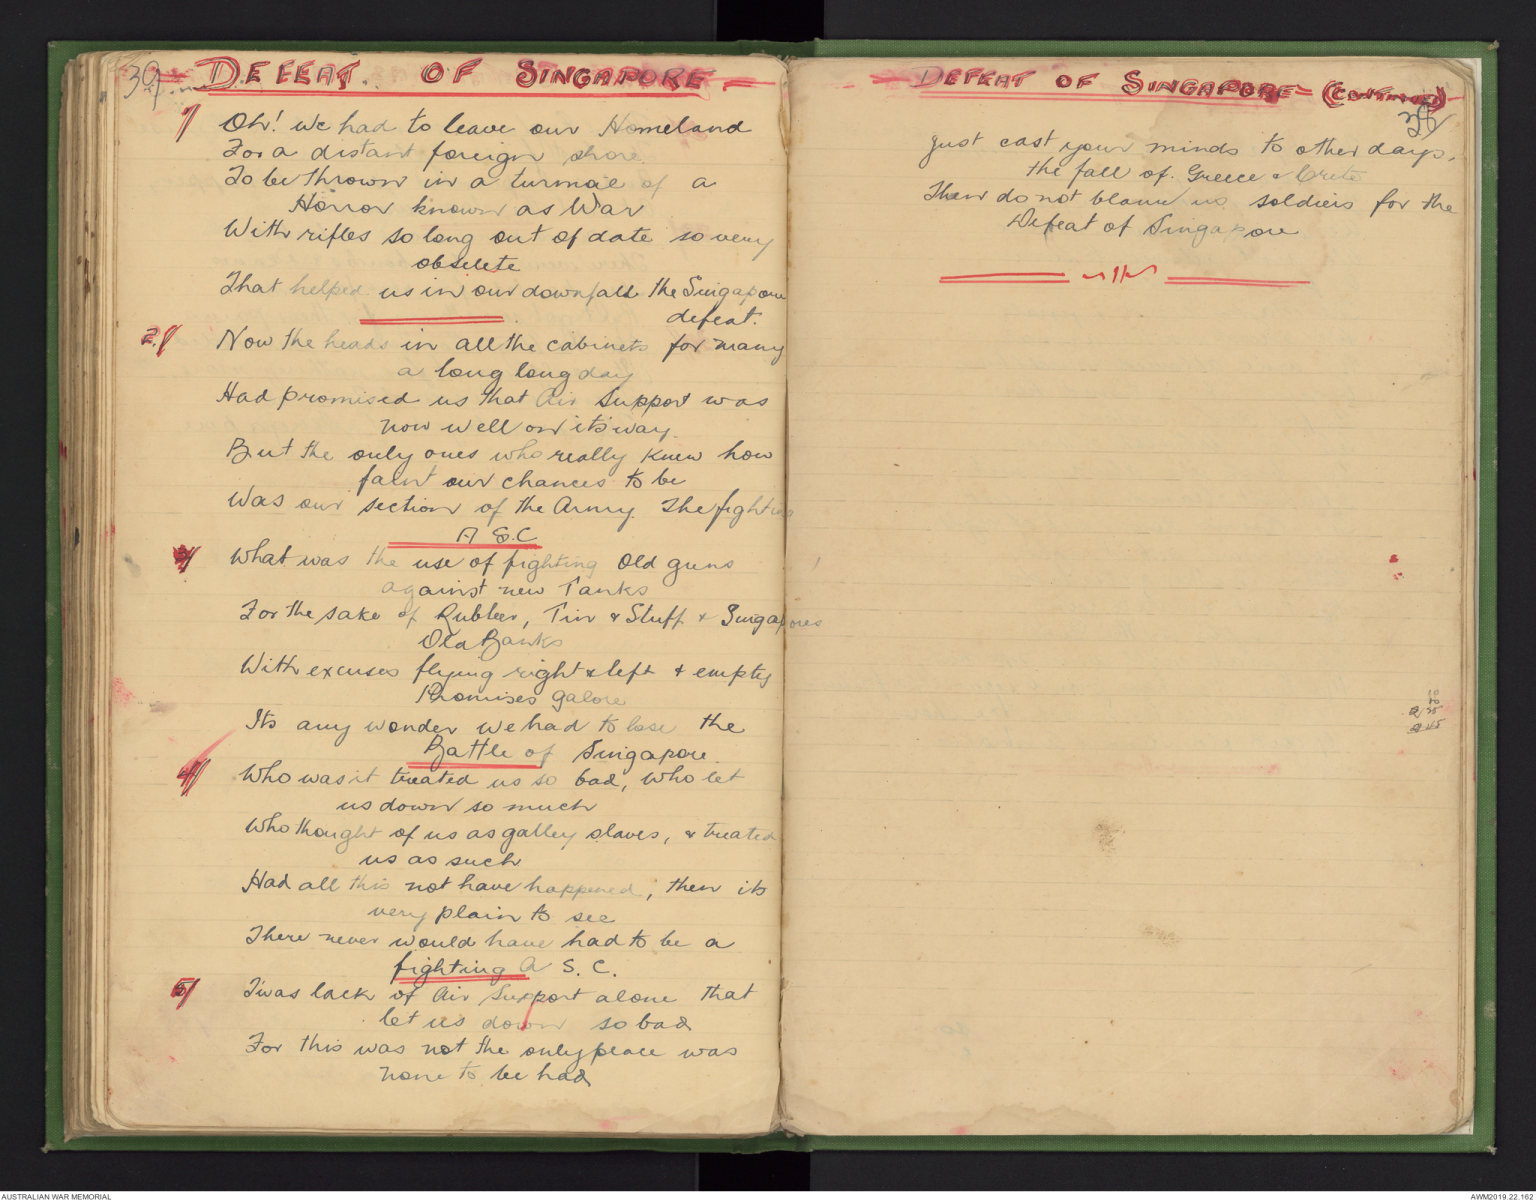 39
DEFEAT OF SINGAPORE
1/ Oh! we had to leave our Homeland
For a distant foreign shore
To be thrown in a turmoil of a
Horror known as War
With rifles so long out of date so very
obselete
That helped us in our downfall the Singapore
defeat.
2/ Now the heads in all the cabinets for many
a long long day
Had promised us that Air Support was
now well on its way.
But the only ones who really knew how
faint our chances to be
Was our section of the Army. The fighting
A S.C
3/ What was the use of fighting Old guns
against new Tanks
For the sake of Rubber, Tin & Stuff & Singapores
Old Banks
With excuses flying right & left & empty
Promises galore
Its any wonder we had to lose the
Battle of Singapore.
4/ Who was it treated us so bad, who let
us down so much
Who thought of us as galley slaves, & treated
us as such
Had all this not have happened, then its
very plain to see
There never would have had to be a
fighting A S. C.
5/ Twas lack of Air Support alone that
let us down so bad
For this was not the only place was
none to be had
DEFEAT OF SINGAPORE (CONTINUED)
Just cast your minds to other days,
the fall of Greece & Crete
Then do not blame us soldiers for the
Defeat of Singapore
AUSTRALIAN WAR MEMORIAL
AWM2019.22.162